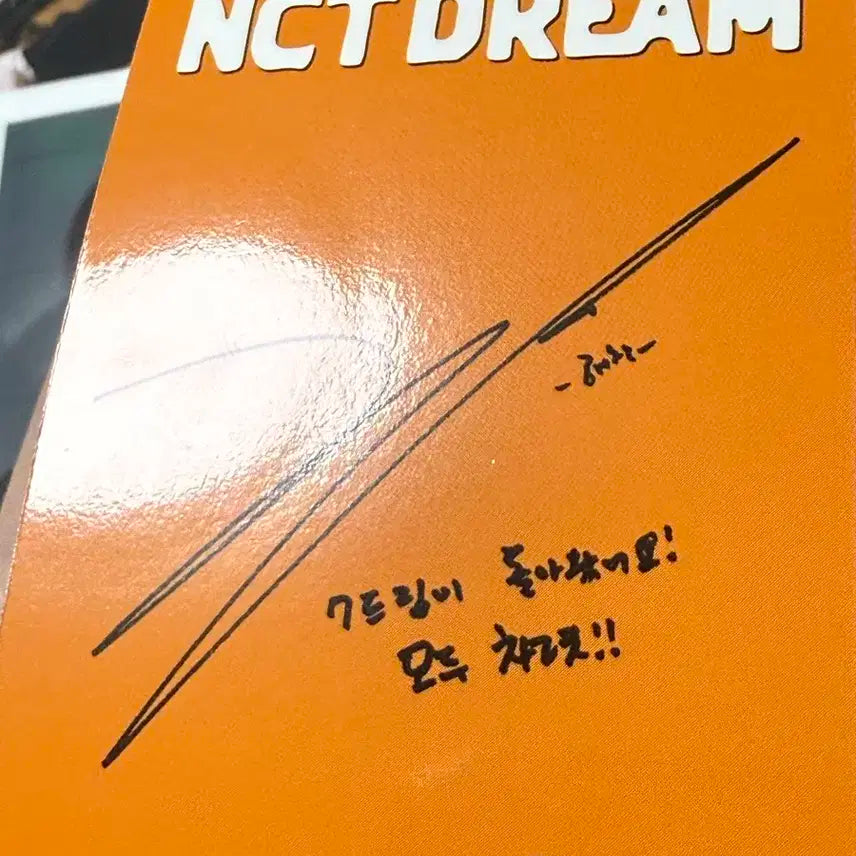 NCT DREAM
-해찬-
7드림이 돌아왔어요!
모두 차렷!!